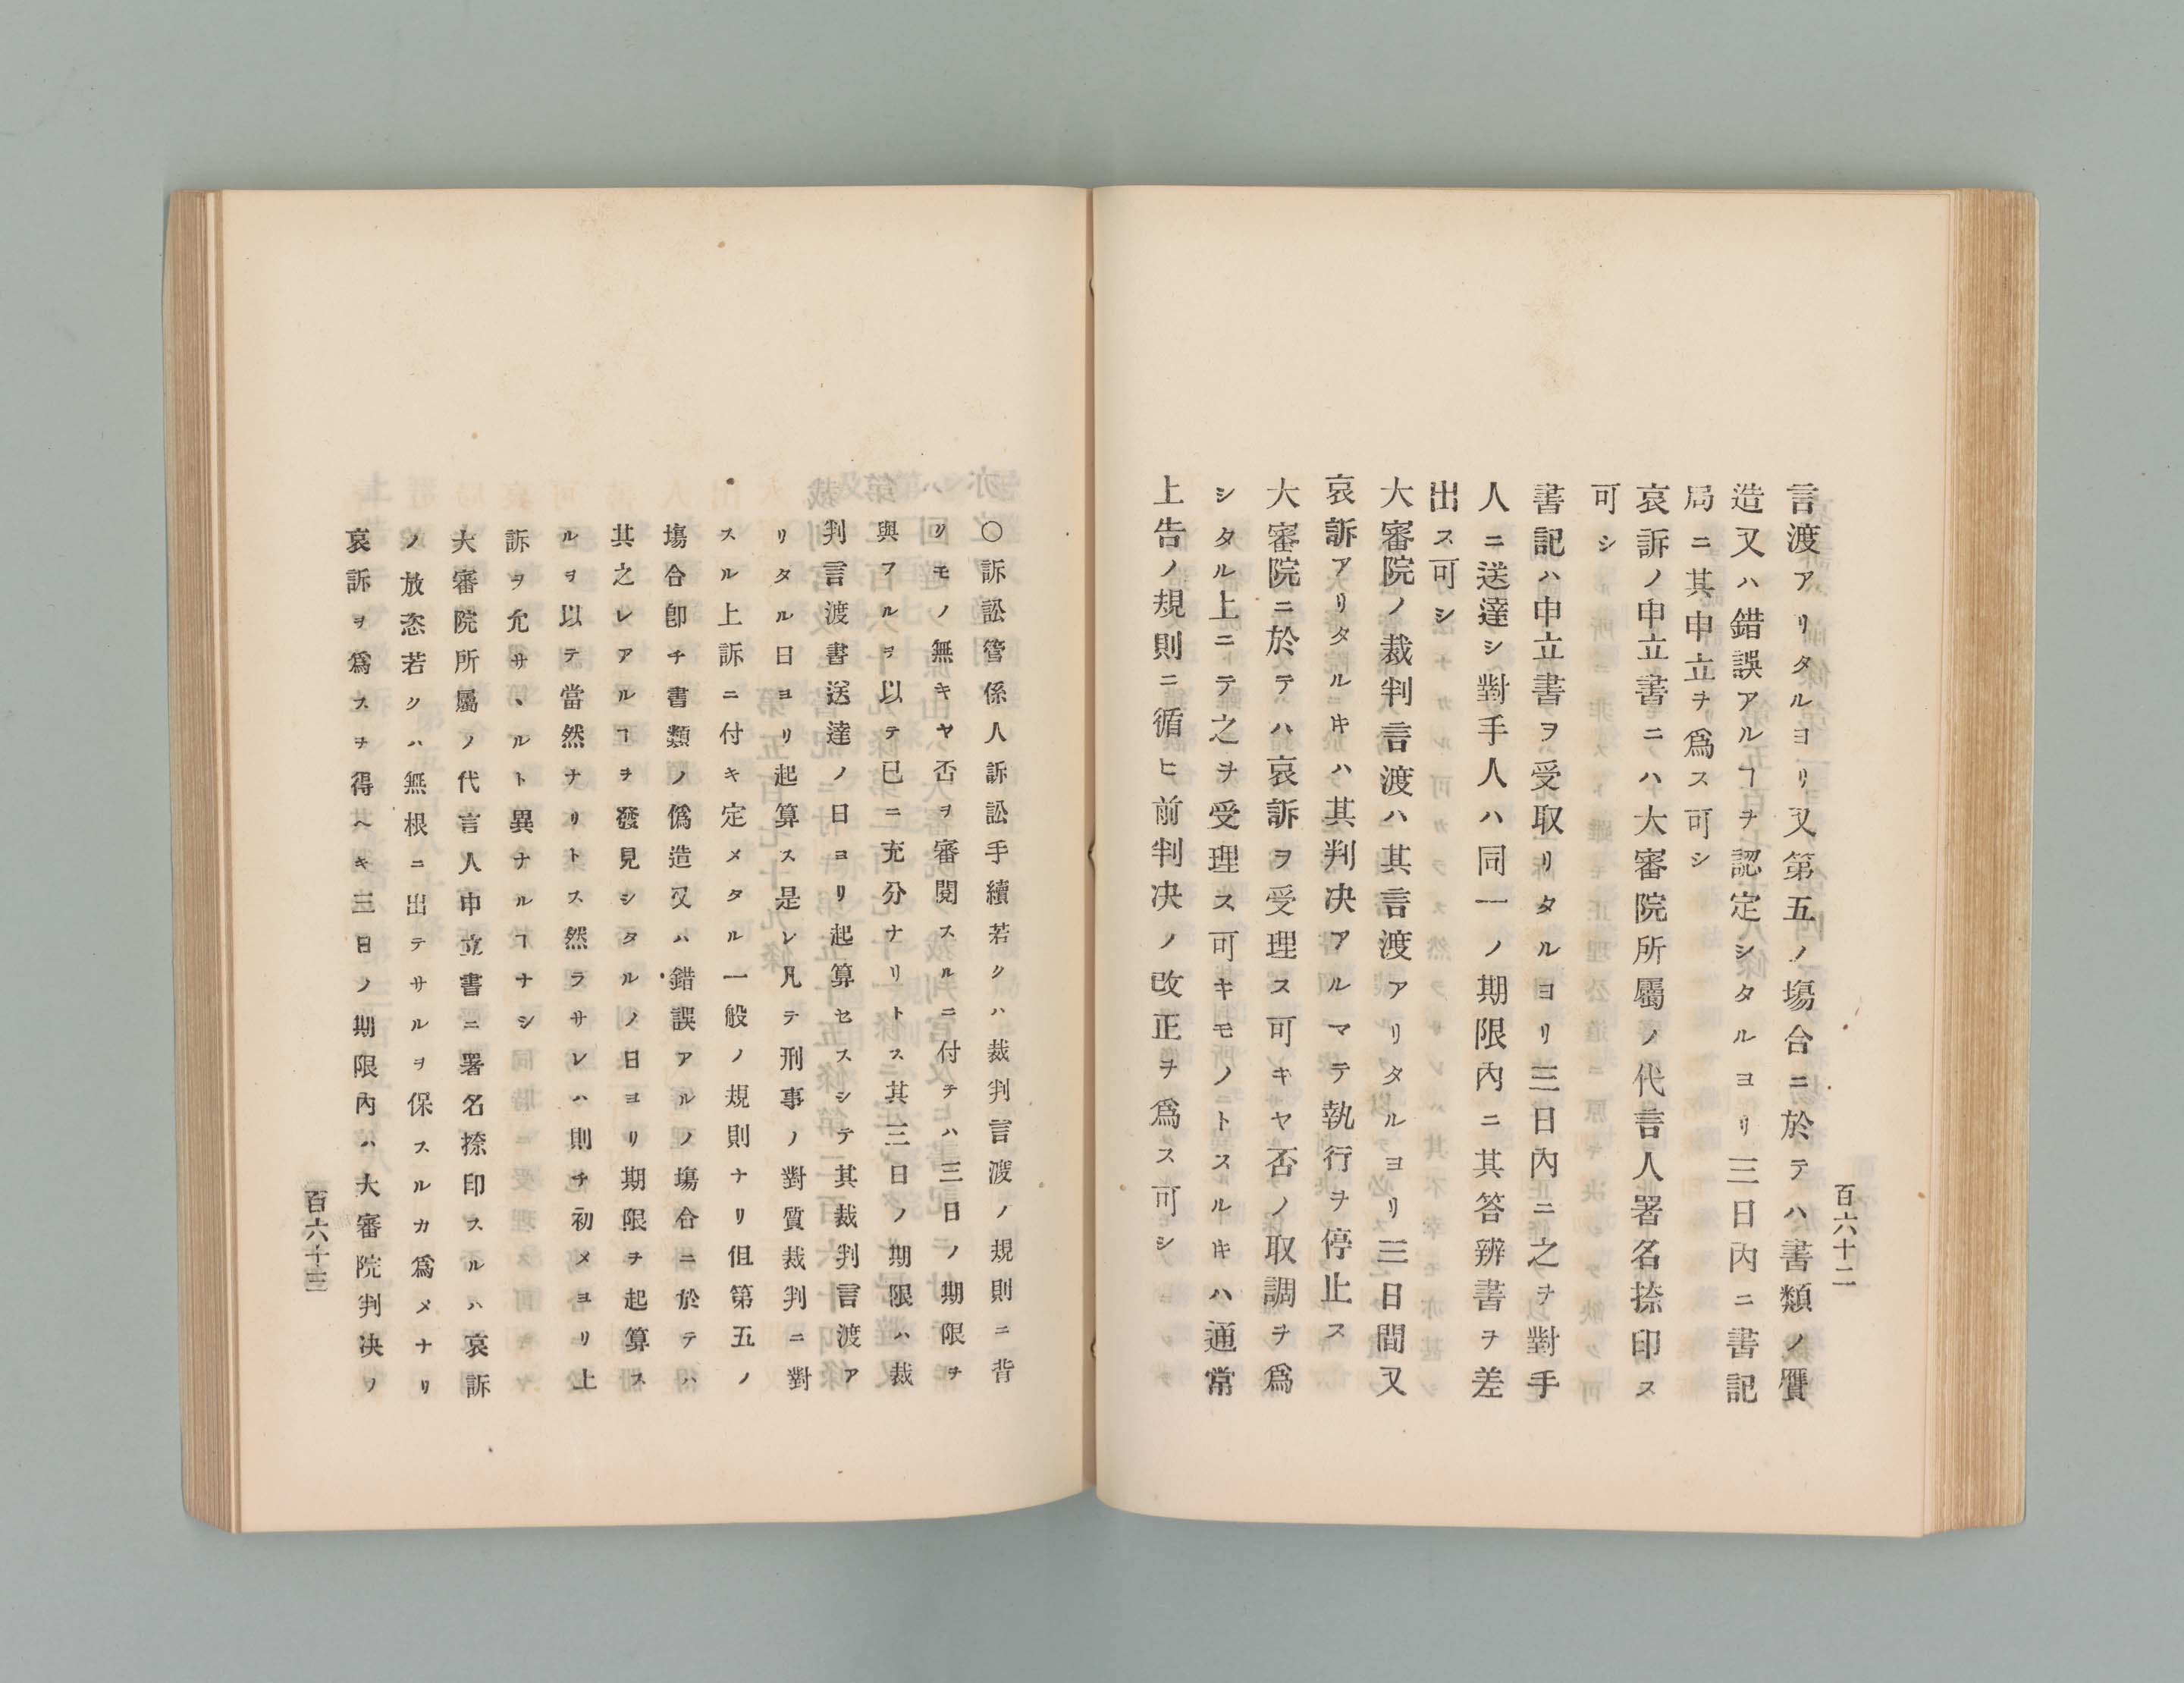 百六十二
言渡アリタルヨリ又第五ノ塲合ニ於テハ書類ノ贋
造又ハ錯誤アルヿヲ認定シタルヨリ三日内ニ書記
局ニ其申立ヲ爲ス可シ
哀訴ノ申立書ニハ大審院所屬ノ代言人署名捺印ス
可シ
書記ハ申立書ヲ受取リタルヨリ三日内ニ之ヲ對手
人ニ送達シ對手人ハ同一ノ期限内ニ其答辨書ヲ差
出ス可シ
大審院ノ裁判言渡ハ其言渡アリタルヨリ三日間又
哀訴アリタルキハ其判决アルマテ執行ヲ停止ス
大審院ニ於テハ哀訴ヲ受理ス可キヤ否ノ取調ヲ爲
シタル上ニテ之ヲ受理ス可キモノトスルキハ通常
上告ノ規則ニ循ヒ前判决ノ改正ヲ爲ス可シ
〇訴訟管係人訴訟手續若クハ裁判言渡ノ規則ニ背
リモノ無キヤ否ヲ審閲スルニ付テハ三日ノ期限ヲ
與フルヲ以テ已ニ充分ナリトス其三日ノ期限ハ裁
判言渡書送達ノ日ヨリ起算セスシテ其裁判言渡ア
リタル日ヨリ起算ス是レ凡テ刑事ノ對質裁判ニ對
スル上訴ニ付キ定メタル一般ノ規則ナリ但第五ノ
塲合卽チ書類ノ僞造又ハ錯誤アルノ塲合ニ於テハ
其之レアルヿヲ發見シタルノ日ヨリ期限ヲ起算ス
ルヲ以テ當然ナリトス然ラサレハ則チ初メヨリ上
訴ヲ允サヽルト異ナルヿナシ
大審院所屬ノ代言人申立書ニ署名捺印スルハ哀訴
ノ放恣若クハ無根ニ出テサルヲ保スルカ爲メナリ
哀訴ヲ爲スヲ得ヘキ三日ノ期限内ハ大審院判决ノ
百六十三